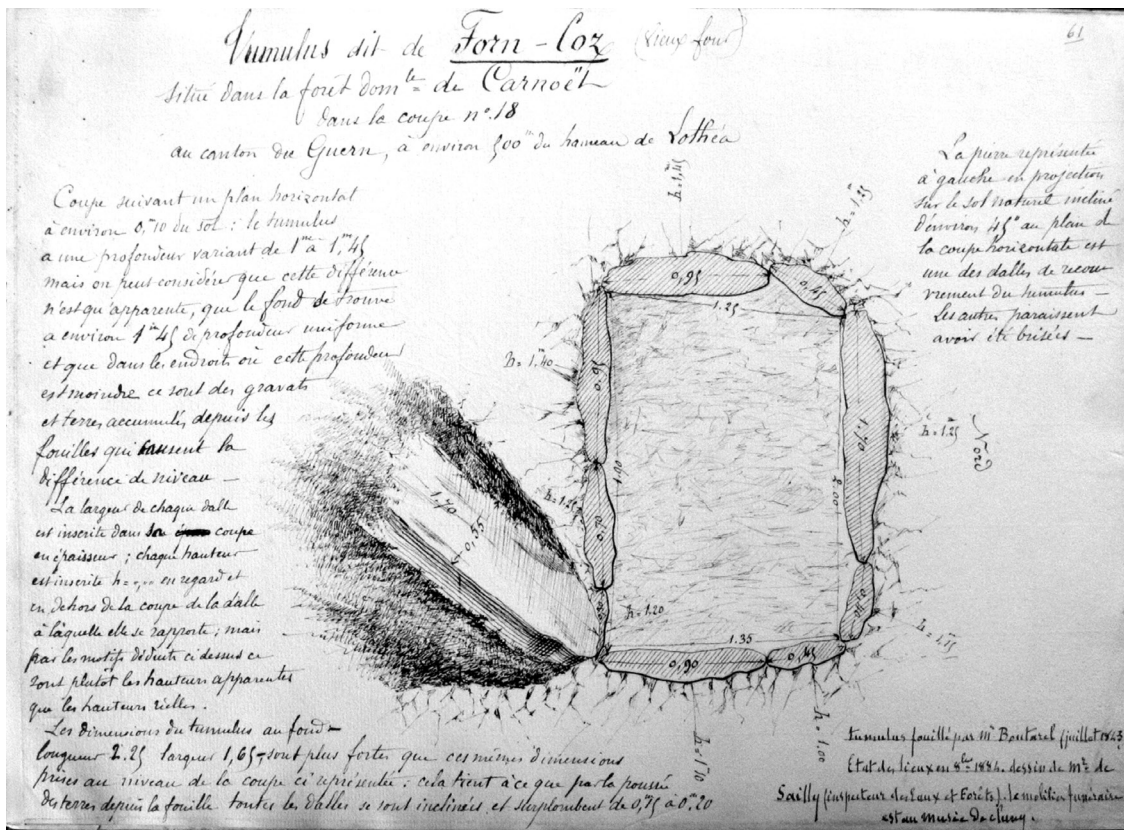 61
Tumulus dit de Forn-Coz (vieux four)
situé dans la forêt dom.le de Carnoët
dans la coupe n°. 18
au canton du Guern, à environ 500m du hameau de Lothéa
Coupe suivant un plan horizontal
à environ 0,m10 du sol : le tumulus
a une profondeur variant de 1m à 1,m45
mais on peut considérer que cette différence
n'est qu'apparente, que le fond se trouve
à environ 1m45 de profondeur uniforme
et que dans les endroits où cette profondeur
est moindre ce sont des gravats
et terres accumulés depuis les
fouilles qui causent la
différence de niveau —
La largeur de chaque dalle
est inscrite dans sa coupe
en épaisseur ; chaque hauteur
est inscrite h = ,,,, en regard et
en dehors de la coupe de la dalle
à laquelle elle se rapporte ; mais
par les motifs déduits ci dessus ce
sont plutôt les hauteurs apparentes
que les hauteurs réelles.
Les dimensions du tumulus au fond —
longueur 2.25 largeur 1,65 — sont plus fortes que ces mêmes dimensions
prises au niveau de la coupe ci représentée : cela tient à ce que par la poussée
des terres depuis la fouille toutes les dalles se sont inclinées et surplombent de 0,15 à 0m20
La pierre représentée
à gauche en projection
sur le sol naturel incliné
d'environ 45° au plan de
la coupe horizontale est
une des dalles de recou
vrement du tumulus —
Les autres paraissent
avoir été brisées —
h = 1.m45
h = 1.m25
0,95
0,45
1.25
h = 1.m40
0.95
1.70
h = 1.m25
Nord
1.90
2.00
h = 1.25
0.70
1.70
0,35
0.30
h = 1.20
h = 1.m15
1.35
0,90
0,45
h = 1m10
h = 1.00
tumulus fouillé par Mr Boutarel (juillet 1843
Etat des lieux en 8bre 1884. dessin de Mr de
Sailly (inspecteur des Eaux et Forêts). le mobilier funéraire
est au musée de Cluny.